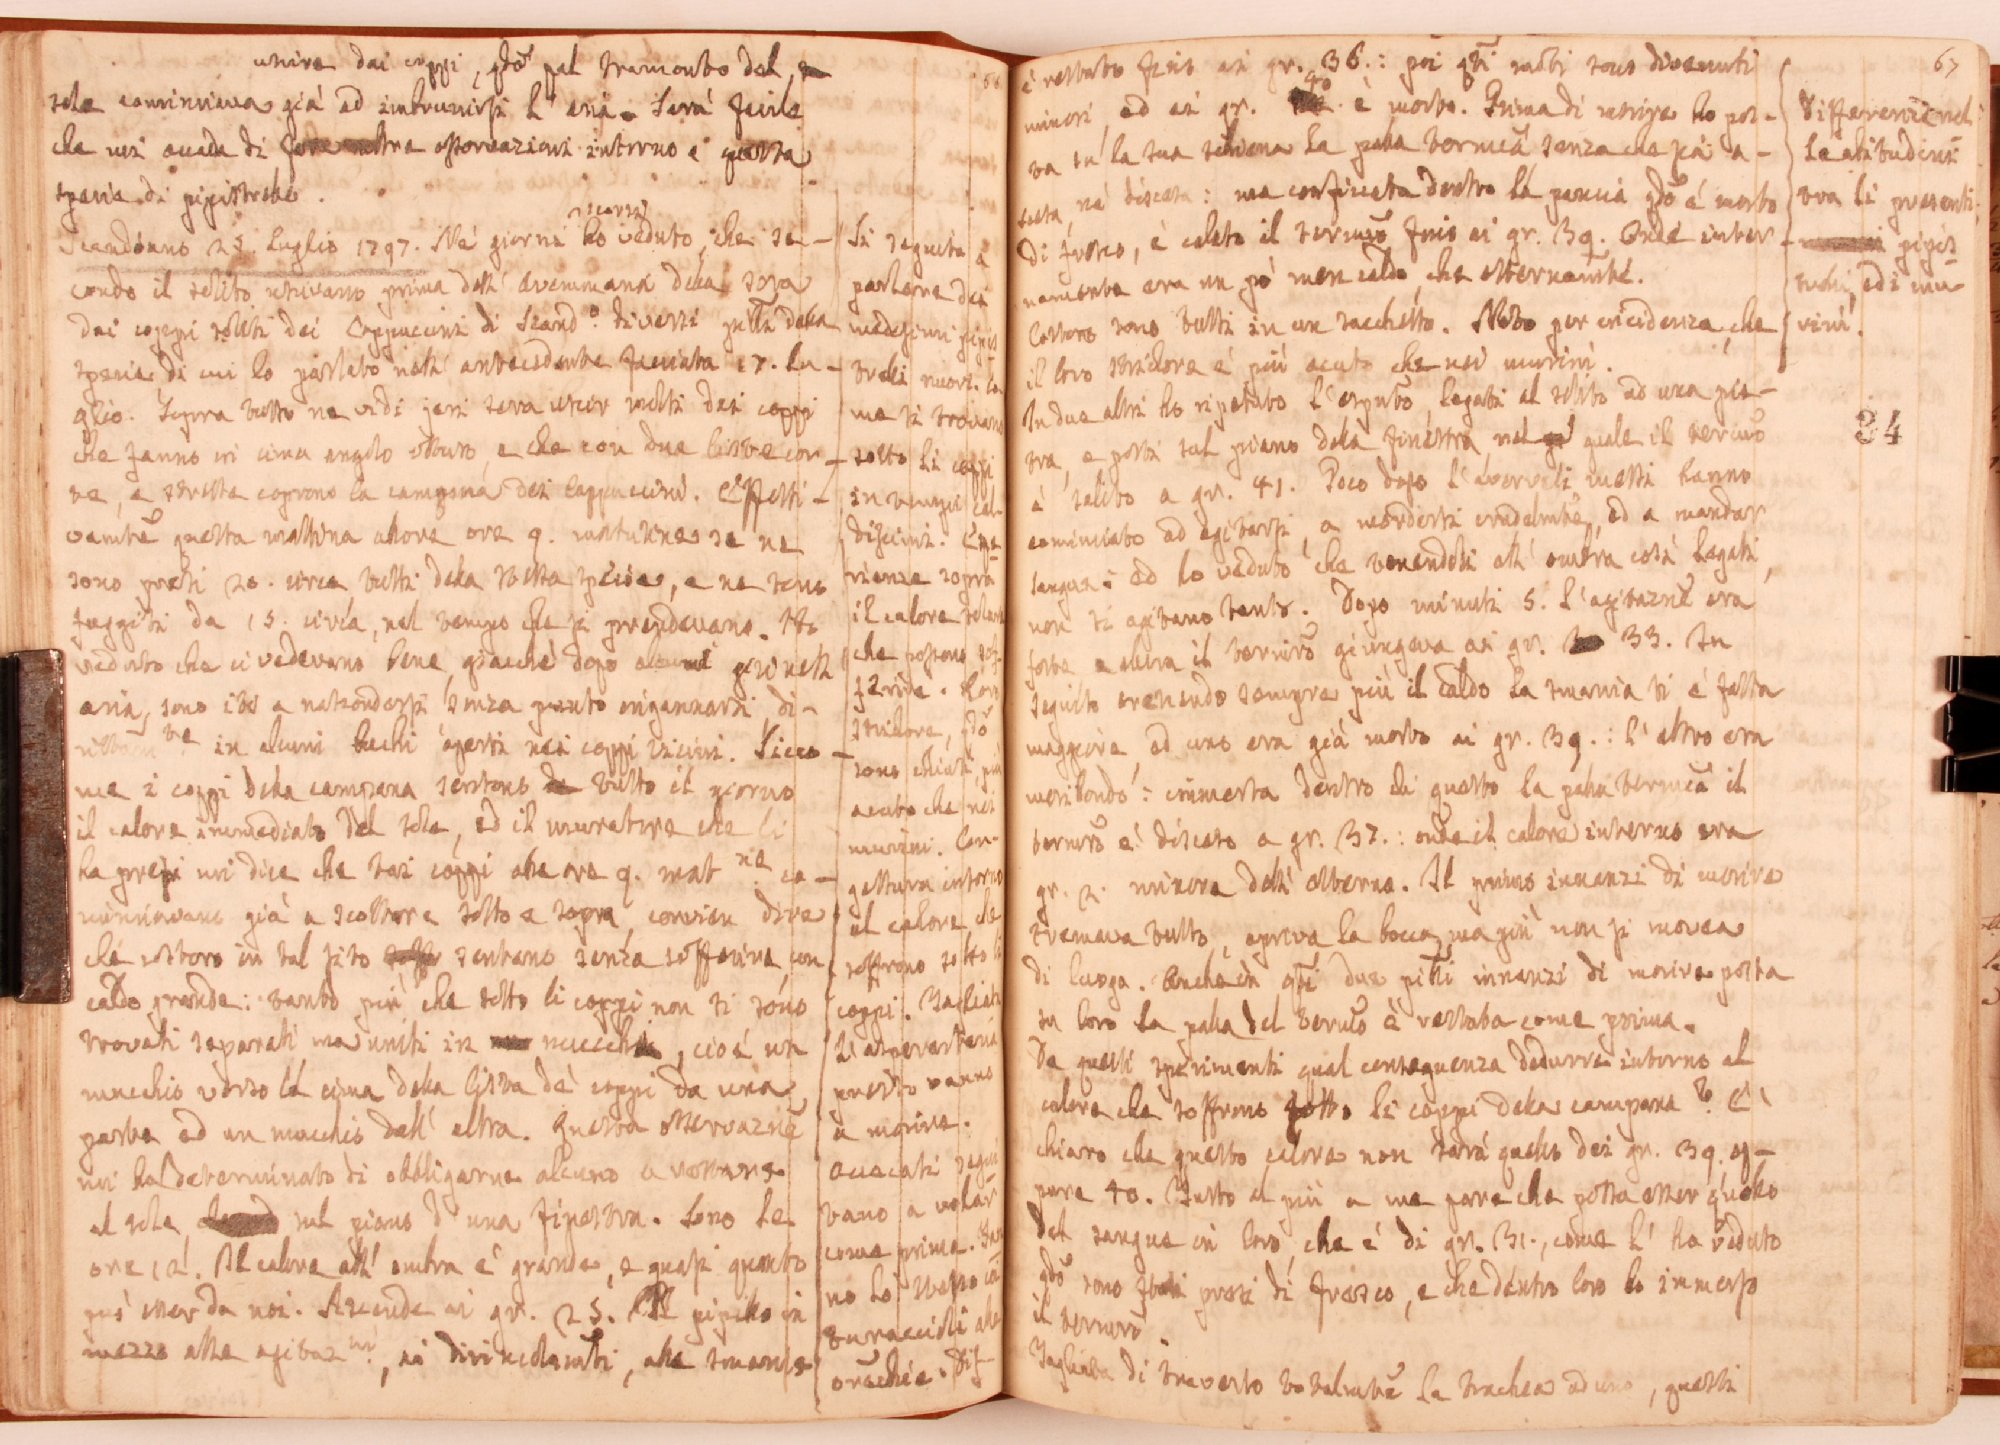 unire dai coppi, qdo pal tramonto del
sole cominciava già ad imbrunirsi l'aria. Sarà facile
che mi accada di fare altre osservazioni intorno a questa
specie di pipistrelli.
Scandiano 25. luglio 1797. Ne' giorni scorsi ho veduto, che se-
condo il solito uscivano prima dell' avemmaria della sera
dai coppi soliti dei Cappuccini di Scando. diversi pilli della
specie di cui ho parlato nell' antecedente facciata 17. lu-
glio. Sopra tutto ne vidi jeri sera uscir molti dai coppi
che fanno in cima angolo ottuso, e che con due liste cor-
te, e strette coprono la campana dei Cappuccini. Effetti-
vamte questa mattina allora ore 9. mattutine se ne
sono presi 20. circa tutti della stessa specie, e ne sono
fuggiti da 15. circa, nel tempo che si prendevano. Ho
veduto che ci vedevano bene, giacchè dopo alcuni giri nell'
aria, sono iti a nascondersi senza punto ingannarsi di-
in alcuni buchi aperti nei coppi vicini. Sicco-
me i coppi della campana sentono tutto il giorno
il calore immediato del sole, ed il muratore che li
ha presi mi dice che tai coppi alle ore 9. matne co-
minciavano già a scottare sotto e sopra, convien dire
che costoro in tal sito sentano senza soffrirne un
caldo grande: tanto più che sotto li coppi non si sono
trovati separati ma uniti in mucchi, cioè un
mucchio verso la cima della lista de' coppi da una
parte ed un mucchio dall' altra. Questa osservazne
mi ha determinato di obbligarne alcuno a restare
al sole, sul piano d'una finestra. Sono le
ore 12. Il calore all' ombra è grande, e quasi quanto
può esser da noi. Ascende ai gr. 25. Il pipillo in
mezzo alle agitazni, ai divincolamti, alle smanie
66
Si seguita a
parlare dei
medesimi pipis-
trelli nuovi. Co-
me si trovano
sotto li coppi
in tempi cal-
dissimi. Espe-
rienze sopra
il calore solare
che possono sof-
frire. Loro
stridore, qdo
sono chiusi, più
acuto che nei
murini. Con-
gettura intorno
al calore che
soffrono sotto li
coppi. Tagliata
l'aspera arteria
presto vanno
a morire.
Acecati segui-
vano a volar
come prima. Fan-
no lo stesso coi
turaccioli alle
orecchie. Dif-
67
è restato fino ai gr. 36.: poi qti moti sono divenuti
minori, ed ai gr. 40. è morto. Prima di morire ho pos-
ta su la sua schiena la palla termica senza che sia a-
scesa, nè discesa: ma conficcata dentro la pancia qdo è morto
di fresco, è calato il termro fino ai gr. 39. Onde inter-
namente era un pò men caldo, che esternamte.
Costoro sono tutti in un sacchetto. Noto per incidenza, che
il loro stridore è più acuto che nei murini.
In due altri ho ripetuto l'esptto, legati al solito ad una pie-
tra, e posti sul piano della finestra, nel quale il termro
è salito a gr. 41. Poco dopo l'averveli messi hanno
cominciato ad agitarsi, a mordersi crudelmte, ed a mandar
sangue: ed ho veduto che tenendoli all' ombra così legati,
non si agitano tanto. Dopo minuti 5. l'agitazne era
forte e allora il termro giungeva ai gr. 33. In
seguito crescendo sempre più il caldo la smania si è fatta
maggiore, ed uno era già morto ai gr. 39.: l'altro era
moribondo: immersa dentro di questo la palla termica il
termro è disceso a gr. 37.: onde il calore interno era
gr. 2. minore dell' esterno. Il primo innanzi di morire
tremava tutto, apriva la bocca, ma più non si movea
di luogo. Anche in qti due pilli innanzi di morire posta
su loro la palla del termro è restata come prima.
Da questi sperimenti qual conseguenza dedurre intorno al
calore che soffrono sotto li coppi della campana? È
chiaro che questo calore non sarà quello dei gr. 39. op-
pure 40. Tutto al più a me pare che possa esser quello
del sangue in loro, che è di gr. 31., come l'ho veduto
qdo sono stati presi di fresco, e che dentro loro ho immerso
il termro.
Tagliata di traverso totalmte la trachea ad uno, questi
Differenze nel-
le abitudini
tra li presenti
pipis-
trelli, ed i mu-
rini.
34